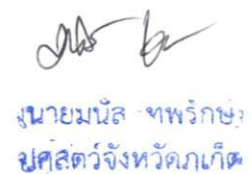 นายมนัส เทพรักษ์
ปศุสัตว์จังหวัดภูเก็ต